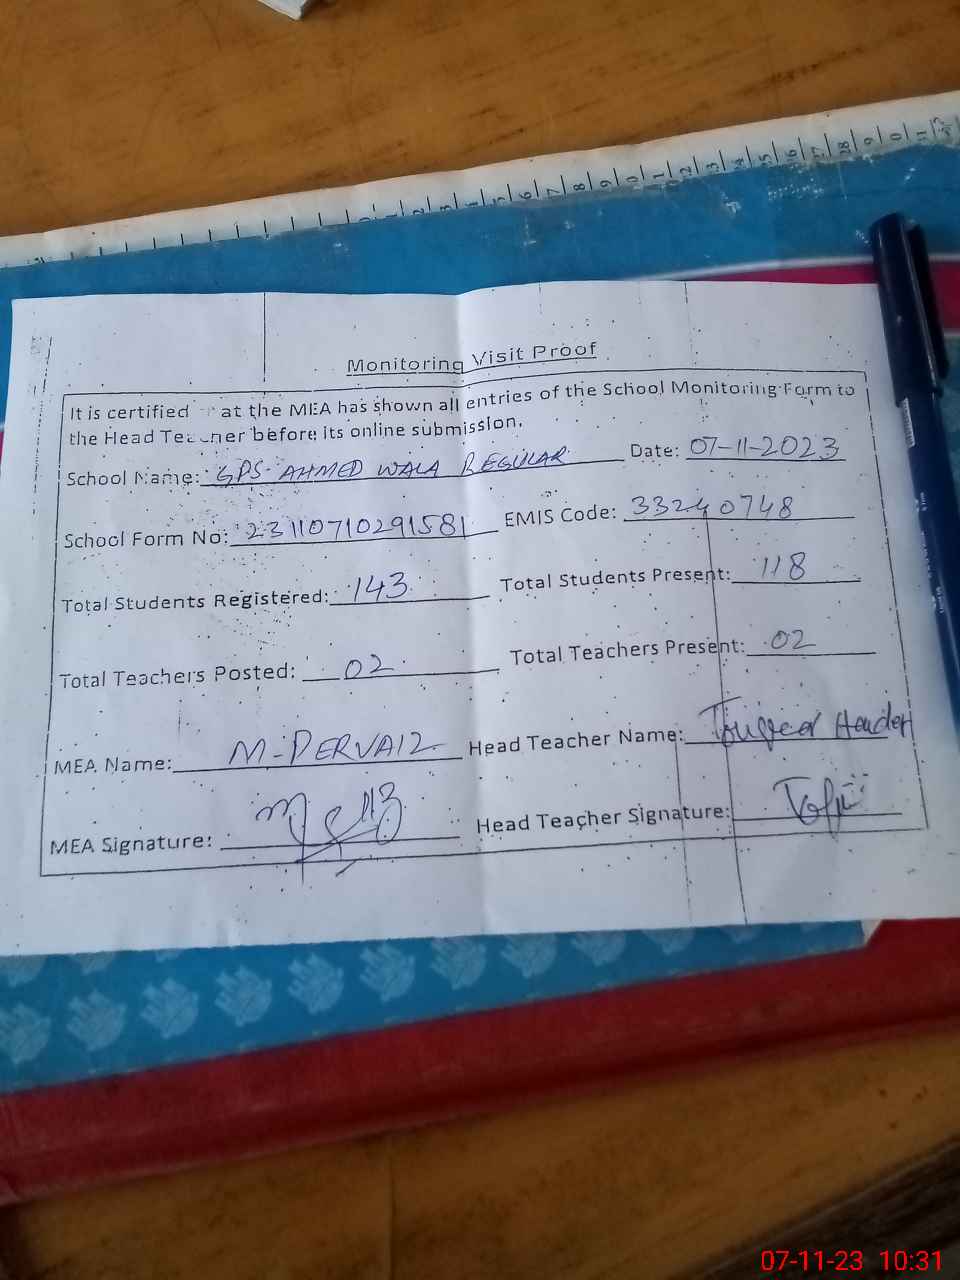 Monitoring Visit Proof
It is certified at the MEA has shown all entries of the School Monitoring Form to
the Head Teacher before its online submission.
School Name: GPS AHMED WALA REGULAR Date: 07-11-2023
School Form No: 23110710291581 EMIS Code: 33240748
Total Students Registered: 143 Total Students Present: 118
Total Teachers Posted: 02 Total Teachers Present: 02
MEA Name: M-PERVAIZ Head Teacher Name:
MEA Signature: Head Teacher Signature:
07-11-23 10:31